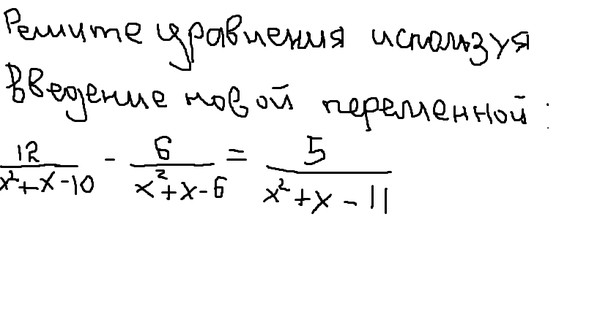 Решите уравнения используя
введение новой переменной:
12/(x²+x-10) - 6/(x²+x-6) = 5/(x²+x-11)